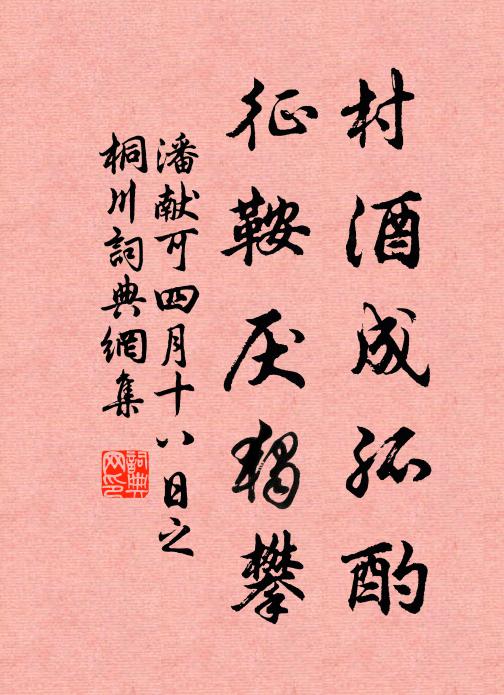 村酒成孤酌
征鞍厌獨攀
潘献可四月十八日之
桐川詞典網集
詞典网印